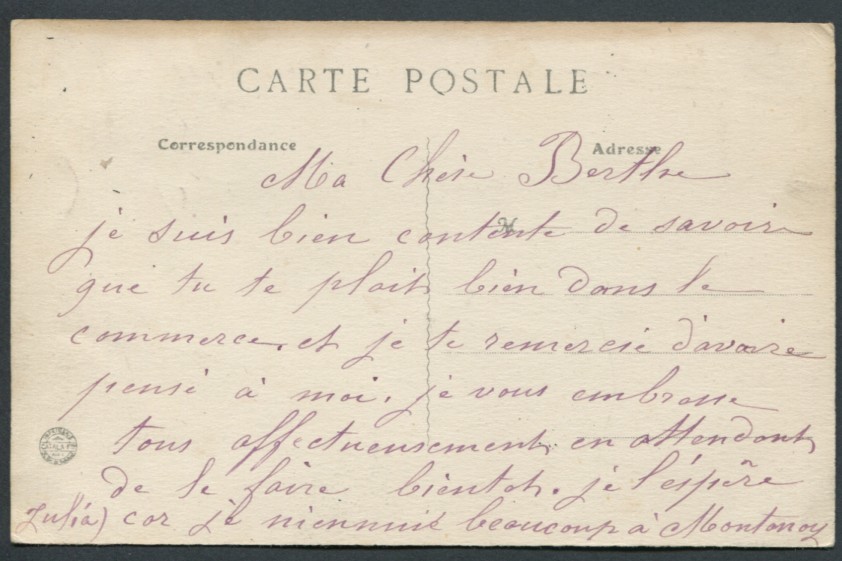 CARTE POSTALE
Correspondance
Adresse
Ma Chère Berthe
je suis bien contente de savoire
que tu te plait bien dans le
commerce. et je te remercie d'avoire
pensé à moi. je vous embrasse
tous affectueusement, en attendant
de le faire bientot. je l'éspère
Julia) car je n'ennuie beaucoup à